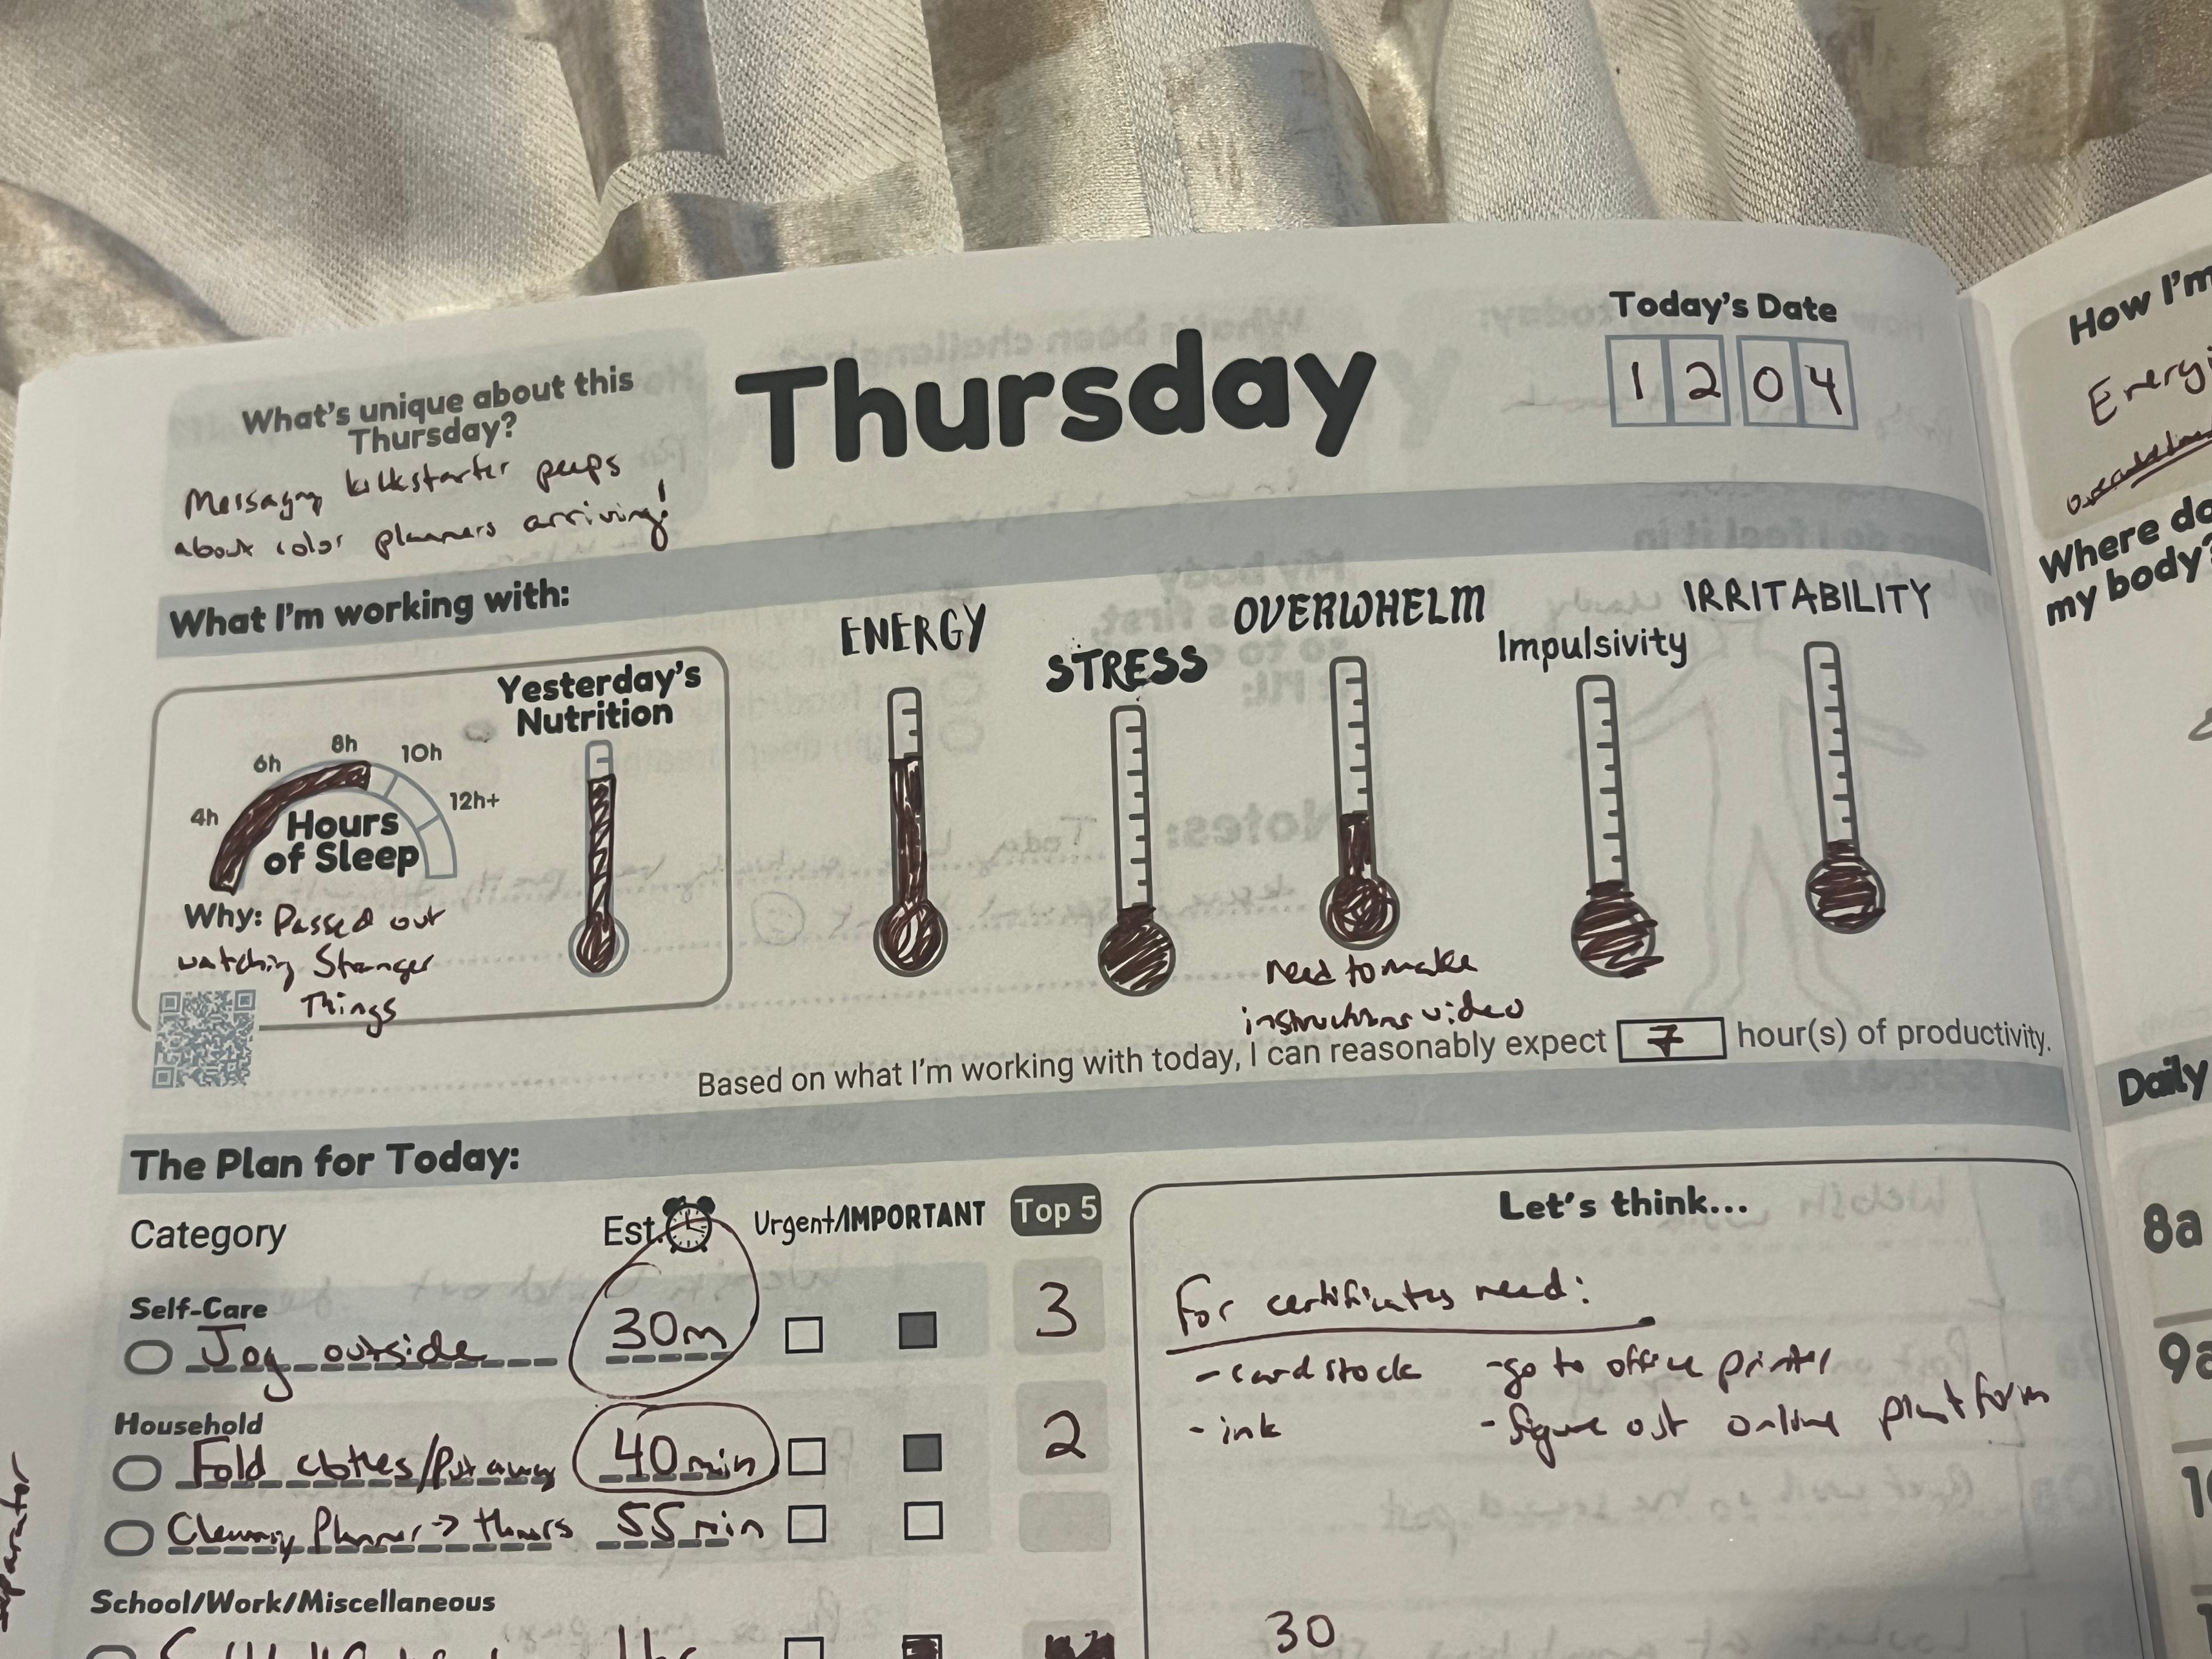 Thursday
Today's Date
1 2 0 4
What's unique about this
Thursday?
Messaging kickstarter peeps
about color planners arriving!
What I'm working with:
Hours
of Sleep
4h
6h
8h
10h
12h+
Why: Passed out
watching Stranger
Things
Yesterday's
Nutrition
ENERGY
STRESS
OVERWHELM
need to make
instructions video
Impulsivity
IRRITABILITY
Based on what I'm working with today, I can reasonably expect 7 hour(s) of productivity.
The Plan for Today:
Category
Est.
Urgent/IMPORTANT
Top 5
Self-Care
Jog outside 30m 3
Household
Fold clothes/Put away 40min 2
Planner → 55 min
School/Work/Miscellaneous
Let's think...
For certificates need:
- cardstock
- ink
- go to office printer
- figure out online platform
30
How I'm
Where do
my body?
Daily
8a